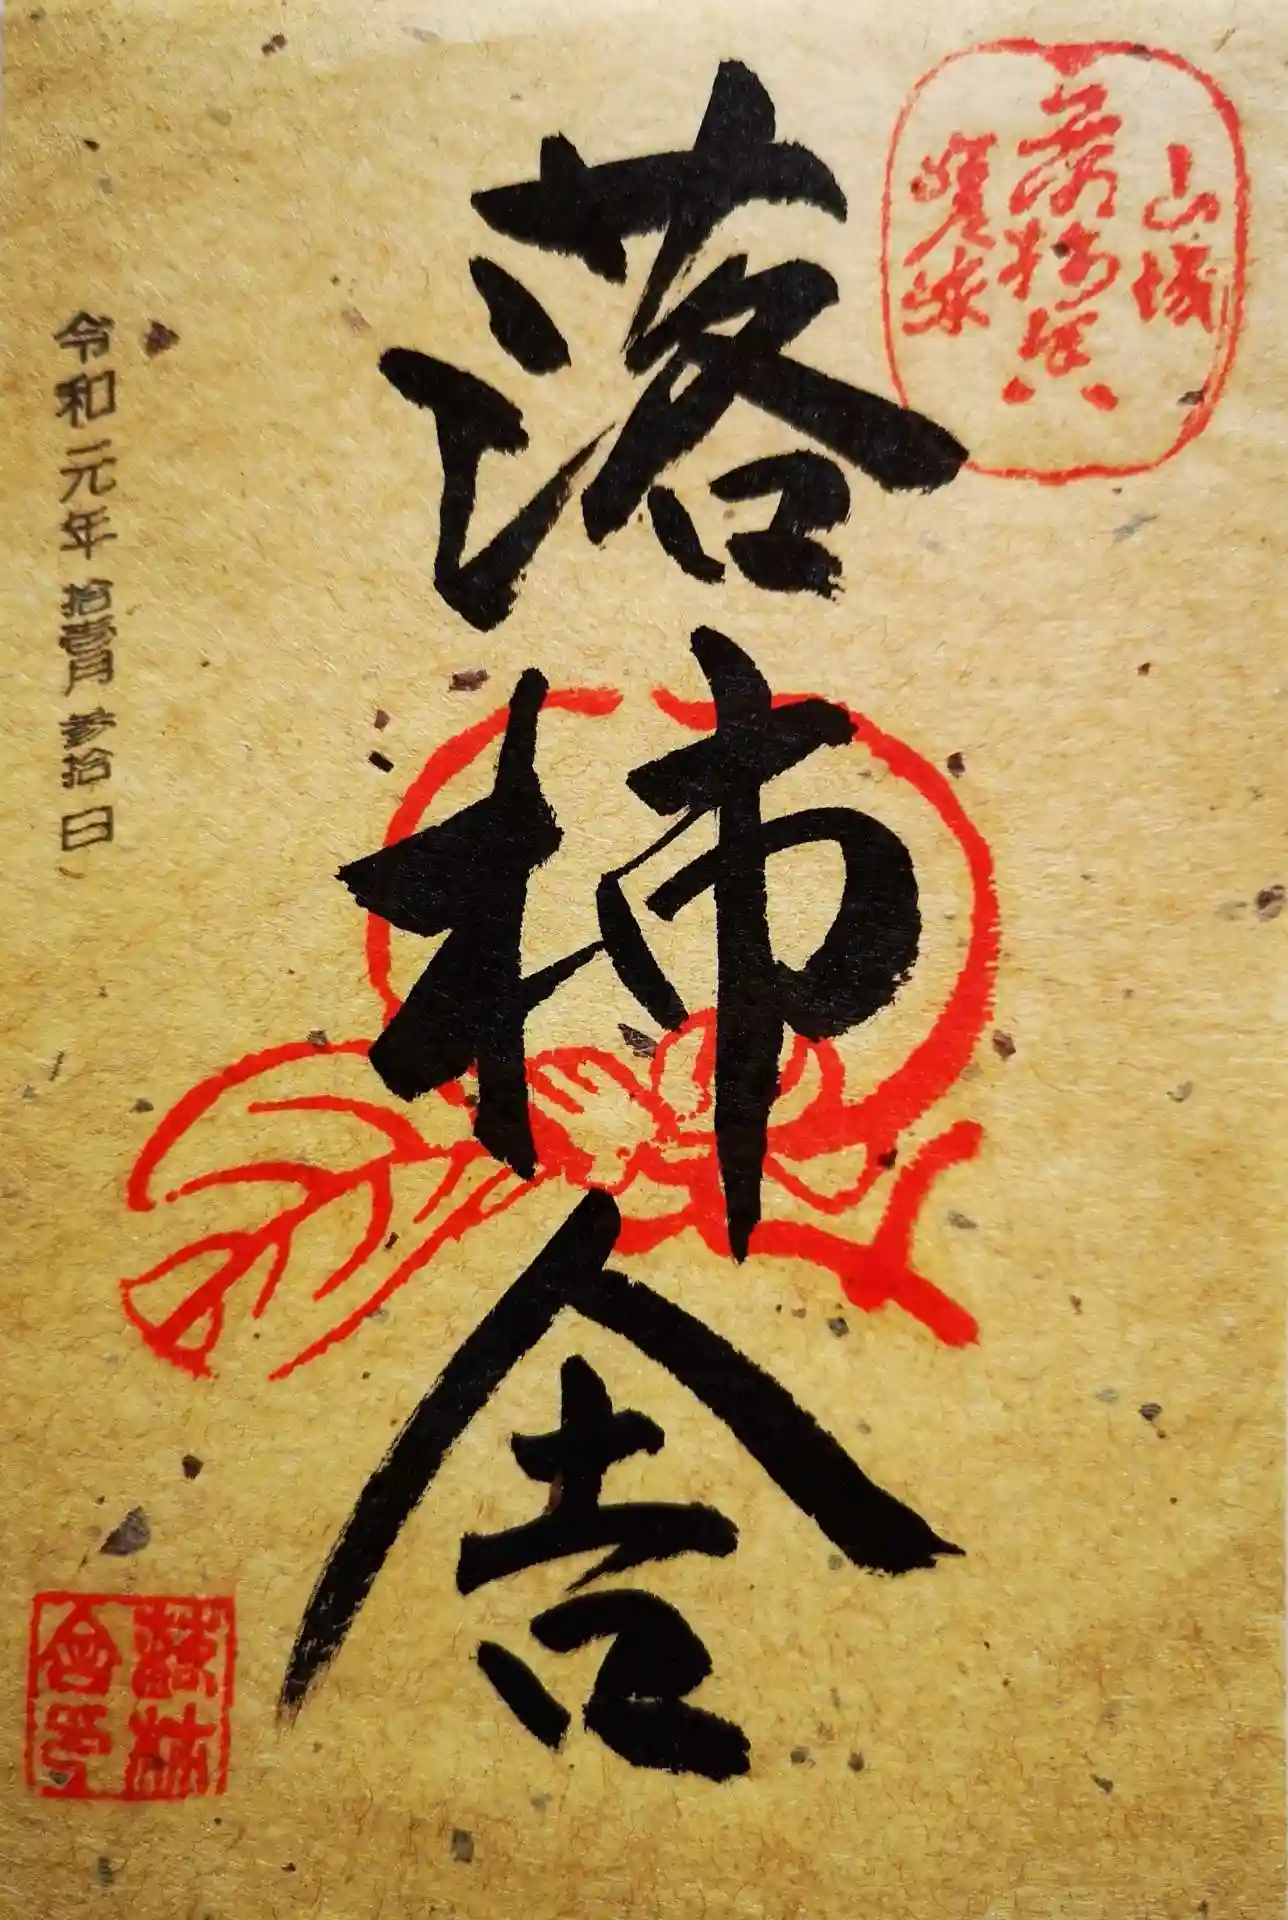 山城
落柿舎
嵯峨
落柿舎
令和元年拾壹月参拾日
落柿
舎印